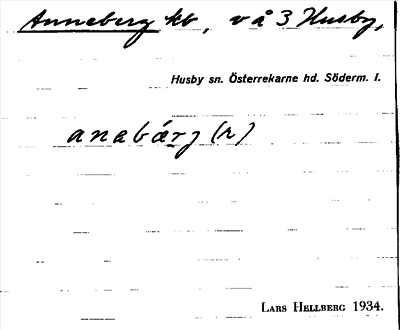 Anneberg kb, v å 3 Husby,
Husby sn. Österrekarne hd. Söderm. l.
anabärj (r)
LARS HELLBERG 1934.